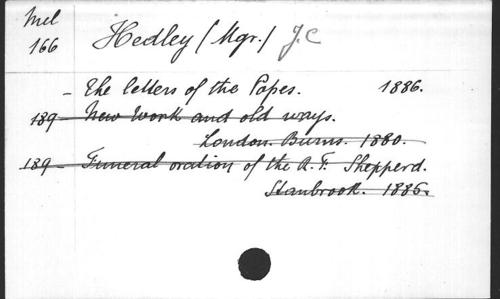 Mel
166
Hedley (Mgr.) J.C
- The letters of the Popes. 1886.
189 - New Work and old ways.
London. Burns. 1880.
189 - Funeral oration of the R.F. Shepperd.
Stanbrook. 1886.